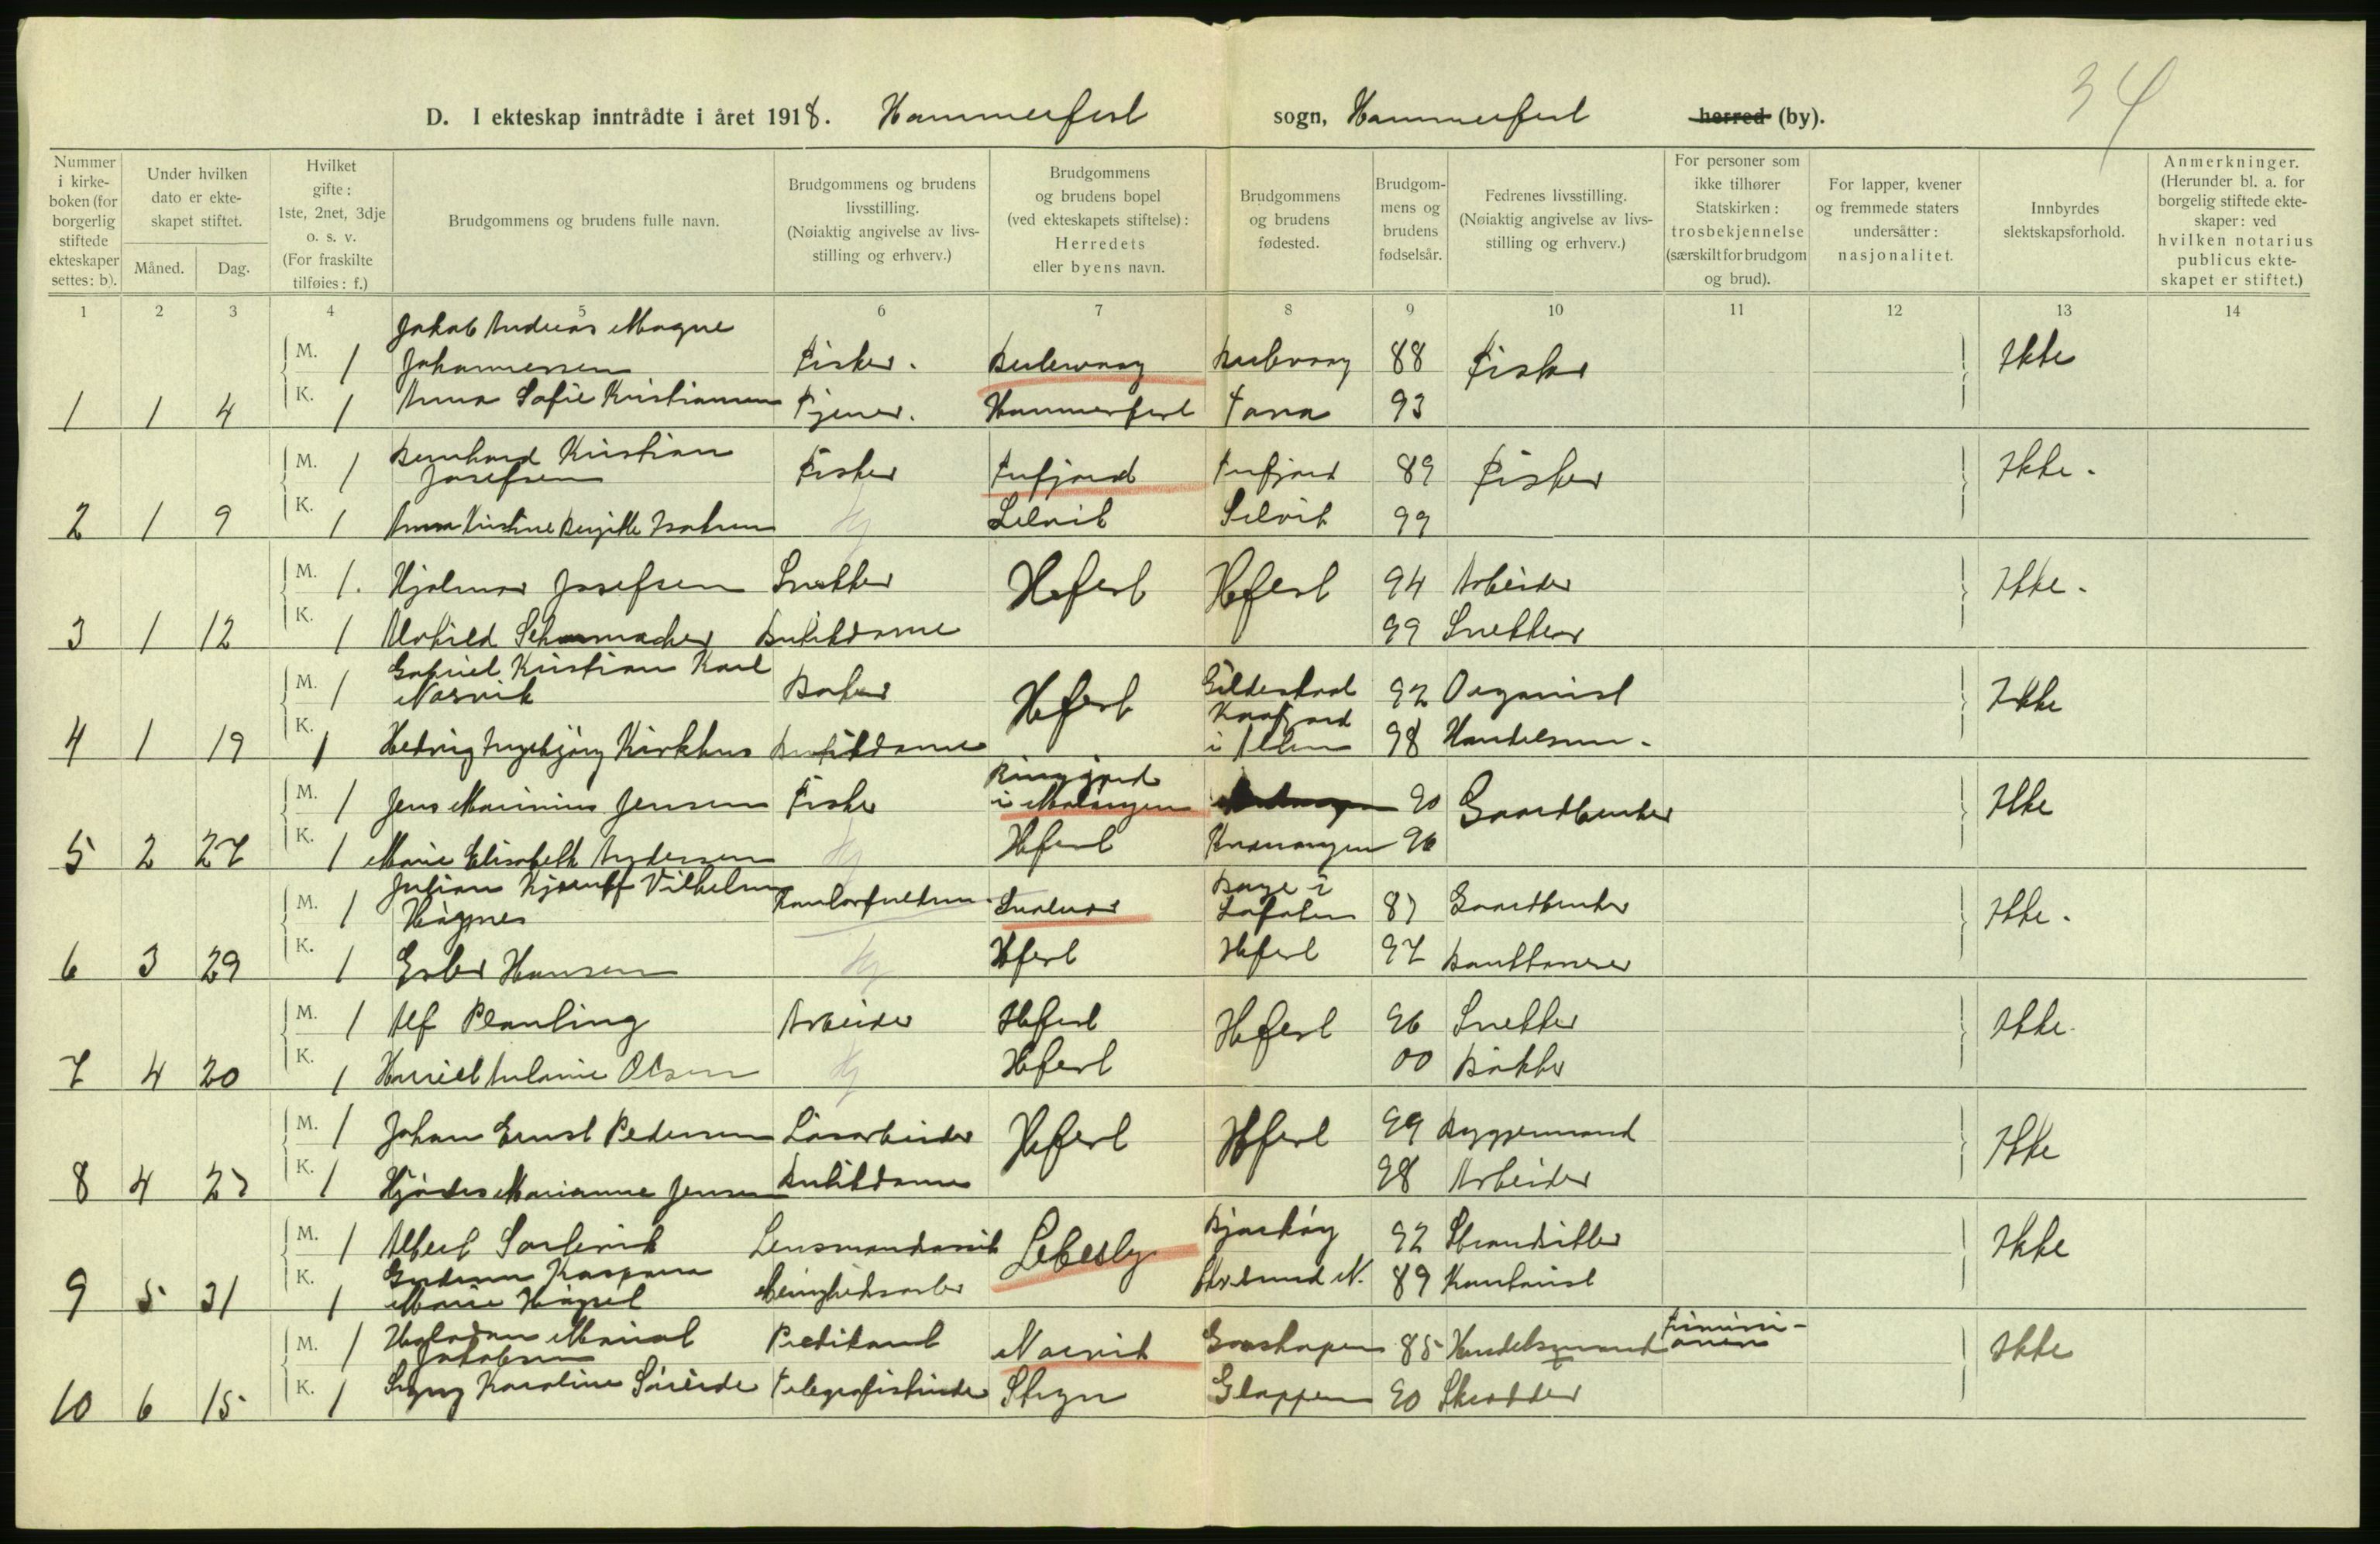 34
D. I ekteskap inntrådte i året 1918. Hammerfest sogn, Hammerfest herred (by).
Nummer i kirkeboken (for borgerlig stiftede ekteskaper settes: b).
Under hvilken dato er ekteskapet stiftet.
Måned. Dag.
Hvilket gifte: 1ste, 2net, 3dje o. s. v. (For fraskilte tilføies: f.)
Brudgommens og brudens fulle navn.
Brudgommens og brudens livsstilling. (Nøiaktig angivelse av livsstilling og erhverv.)
Brudgommens og brudens bopel (ved ekteskapets stiftelse): Herredets eller byens navn.
Brudgommens og brudens fødested.
Brudgommens og brudens fødselsår.
Fedrenes livsstilling. (Nøiaktig angivelse av livsstilling og erhverv.)
For personer som ikke tilhører Statskirken: trosbekjennelse (særskilt for brudgom og brud).
For lapper, kvener og fremmede staters undersåtter: nasjonalitet.
Innbyrdes slektskapsforhold.
Anmerkninger. (Herunder bl. a. for borgelig stiftede ekteskaper: ved hvilken notarius publicus ekteskapet er stiftet.)
1 2 3 4 5 6 7 8 9 10 11 12 13 14
Jakob Andreas Magne
M. 1 Johannessen Fisker. 88 Fisker Ikke
1 1 4 K. 1 Anna Sofie Kristiansen Tjener. Hammerfest Tana 93
Bernhard Kristian
M. 1 Josefsen Fisker Tufjord Tufjord 89 Fisker Ikke.
2 1 9 K. 1 Anna Kristine Bergitte Isaksen Selvik Selvik 99
M. 1. Hjalmar Josefsen Snekker Hfest Hfest 94 Arbeider Ikke.
3 1 12 K. 1 Alvhild Schumacher Butikdame 99 Snekker
Gabriel Kristian Karl
M. 1 Narvik Baker Hfest Gildeskaal 92 Organist Ikke
Kaafjord
4 1 19 K. 1 Hedvig Ingebjørg Kirkhus Butikdame i Alten 98 Handelsm.
M. 1 Jens Marinius Jensen Fisker i Malangen 90 Gaardbruker Ikke
5 2 27 K. 1 Marie Elisabeth Andersen Hfest Kvænangen 96
M. 1 Hågnes Svolvær Lofoten 87 Gaardbruker Ikke.
6 3 29 K. 1 Ester Hansen Hfest Hfest 97 Bankkasserer
M. 1 Alf Planting Arbeider Hfest Hfest 96 Snekker Ikke.
7 4 20 K. 1 Harriet Antonie Olsen Hfest 00 Bøkker
M. 1 Johan Ernst Pedersen Løsarbeider Hfest Hfest 99 Byggmand Ikke
8 4 27 K. 1 Hjørdis Marianne Jensen Butikdame 98 Arbeider
M. 1 Albert Lensmandsassist Lebesby 92 Strandsitter Ikke
Gudrun Kaspara
9 5 31 K. 1 Marie 89 Kontorist
M. 1 Jakobsen Predikant Narvik 85 Handelsmand Ikke
10 6 15 K. 1 Signy Karoline Telegrafistinde Stryn Gloppen 90 Skrædder